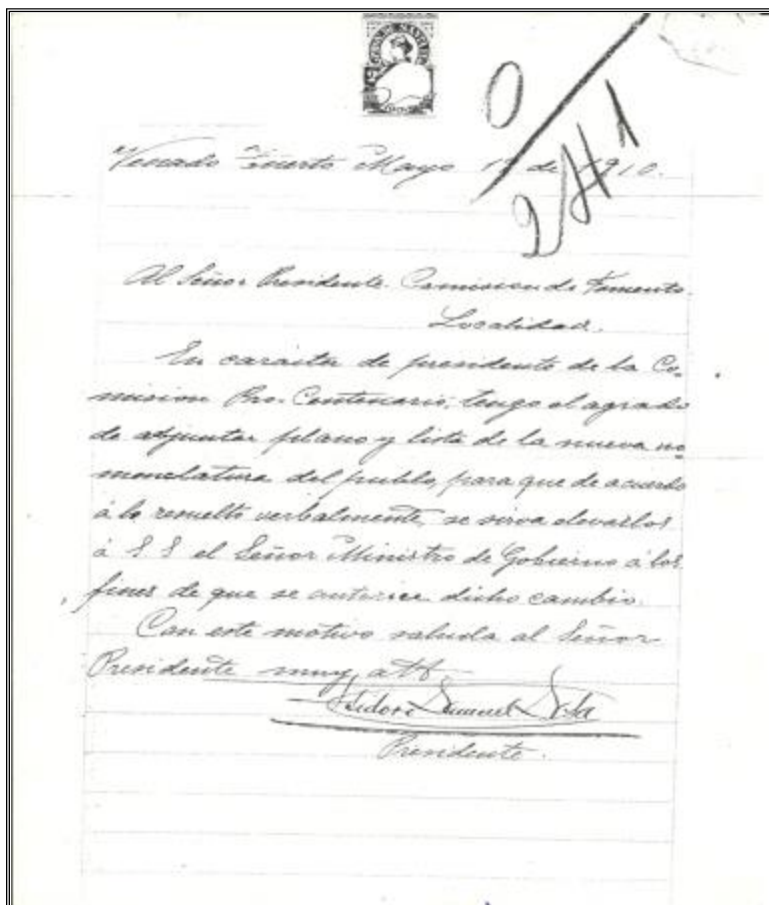 Venado Tuerto Mayo 1º de 1910.
Al Señor Presidente. Comision de Fomento.
Localidad.
En caracter de presidente de la Co-
mision Pro-Centenario, tengo el agrado
de adjuntar plano y lista de la nueva no
menclatura del pueblo, para que de acuerdo
á lo resuelto verbalmente, se sirva elevarlos
á S. S el Señor Ministro de Gobierno á los
fines de que se autorice dicho cambio.
Con este motivo saluda al Señor
Presidente muy att
Presidente.